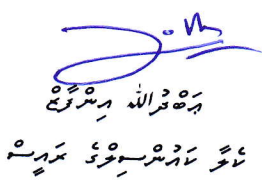 ޢަބްދުﷲ އިންފާޒް
ކެލާ ކައުންސިލްގެ ރައީސް